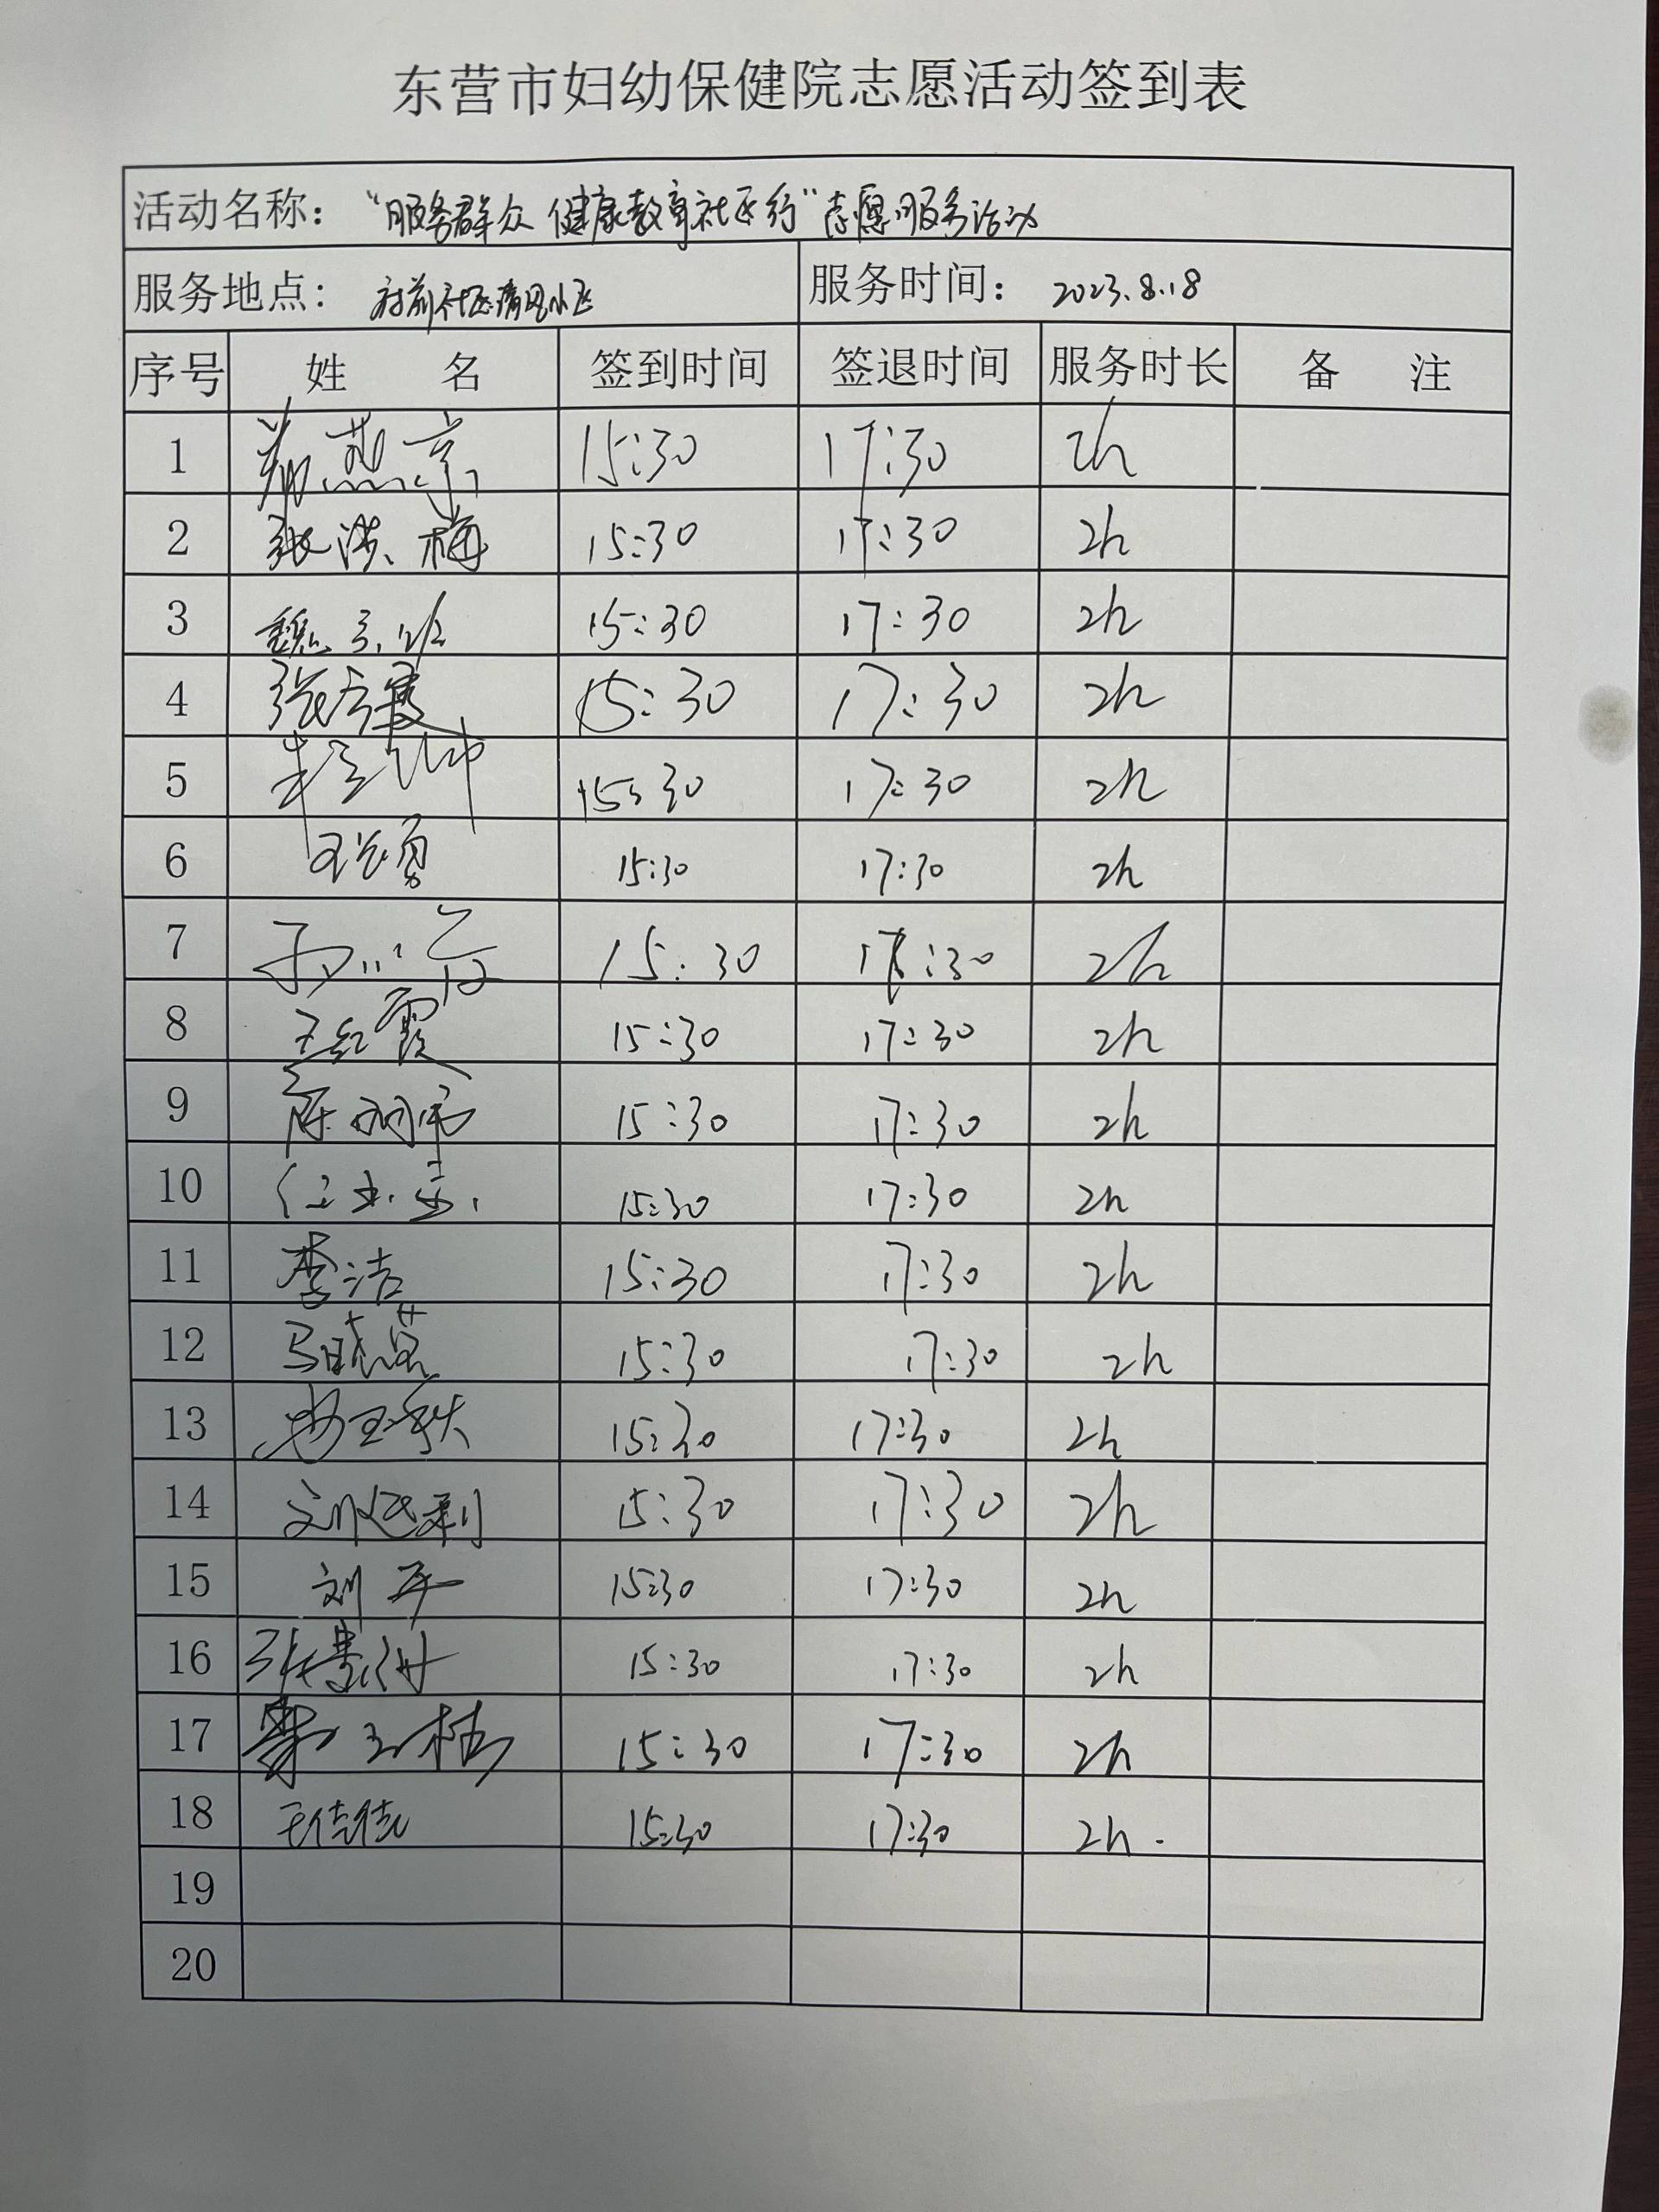 东营市妇幼保健院志愿活动签到表
活动名称：“服务群众 健康教育社区行”志愿服务活动
服务地点：府前社区清风小区 服务时间：2023.8.18
序号 姓 名 签到时间 签退时间 服务时长 备 注
1 燕京 15:30 17:30 2h
2 张洪梅 15:30 17:30 2h
3 魏 15:30 17:30 2h
4 张秀霞 15:30 17:30 2h
5 15:30 17:30 2h
6 15:30 17:30 2h
7 15:30 17:30 2h
8 王红霞 15:30 17:30 2h
9 陈 15:30 17:30 2h
10 任 15:30 17:30 2h
11 李洁 15:30 17:30 2h
12 马晓英 15:30 17:30 2h
13 玉秋 15:30 17:30 2h
14 刘延利 15:30 17:30 2h
15 刘平 15:30 17:30 2h
16 张 15:30 17:30 2h
17 15:30 17:30 2h
18 王佳佳 15:30 17:30 2h.
19
20